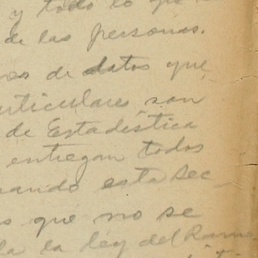 y todo lo que
de las personas.
de datos que
particulares son
de Estadística
entregan todos
esta Sec
que no se
la la ley del Ramo